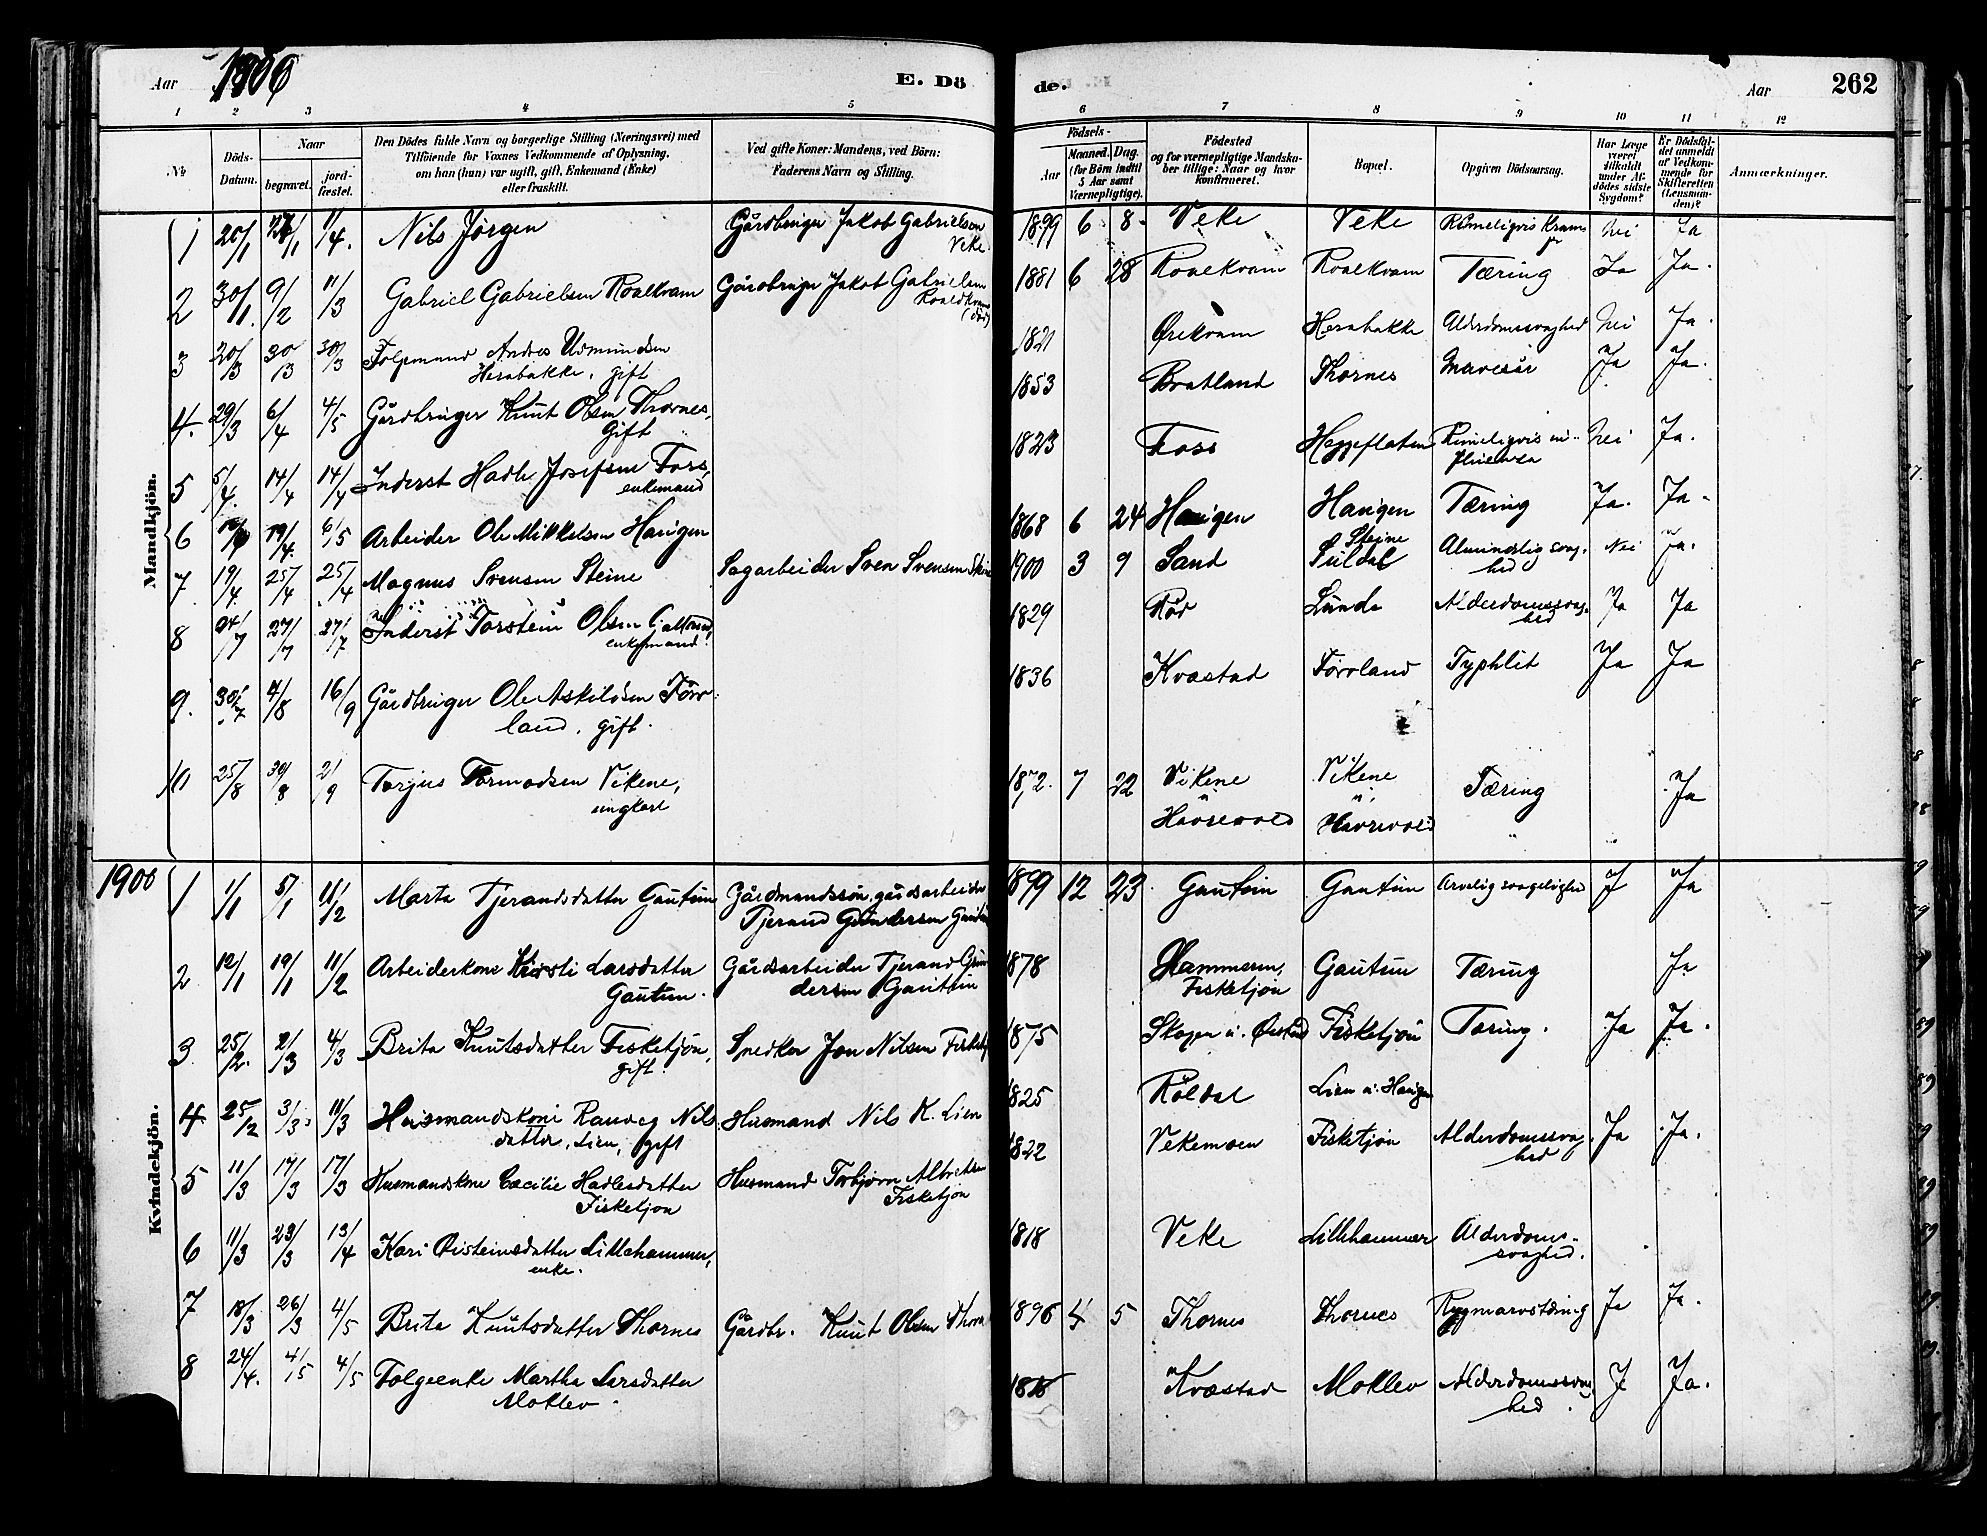 Aar 1900 E. Dö
de. Aar 262
1 2 3 4 5
6 7 8 9 10 11 12
No
Döds-Datum.
Naar
begravet.
jord-fæstet.
Den Dödes fulde Navn og borgerlige Stilling (Næringsvei) med
Tilföiende for Voxnes Vedkommende af Oplysning,
om han (hun) var ugift, gift, Enkemand (Enke)
eller fraskilt.
Ved gifte Koner: Mandens, ved Börn:
Faderens Navn og Stilling.
Födsels-
Aar
Maaned. Dag.
(for Börn indtil
5 Aar samt
Værnepligtige).
Födested
og for værnepligtige Mandska-
ber tillige: Naar og hvor
konfirmeret.
Bopæl.
Opgiven Dödsaarsag.
Har Læge
været
tilkaldt
under Af-
dödes sidste
Sygdom?
Er Dödsfal-
det anmeldt
af Vedkom-
mende for
Skifteretten
(Lensman-
den)?
Anmærkninger.
Mandkjön.
1 20/1 27/1 11/4. Nils Jörgen Gårdbruger Jakob Gabrielsen Veke. 1899 6 8 Veke Veke Rimeligvis Kramper Nei Ja
2 30/1. 9/2 11/3 Gabriel Gabrielsen Roalkvam Gårdbruger Jakob Gabrielsen Roaldkvam (död) 1881 6 28 Roalkvam Roalkvam Tæring Ja Ja.
3 20/3 30/3 30/3 Folgemand Andres Asmundsen
Herabakke, gift 1821 Örekvam Herabakke Alderdomssvaghed Nei Ja.
4. 29/3 6/4 4/5 Gårdbruger Knut Olsen Thornes,
Gift 1853 Bratland Thornes Mavesår Ja Ja.
5 5/4. 14/4 14/4 Inderst Hadle Josefsen Foss,
enkemand 1823 Foss Heggeflaten Rimeligvis influensa Nei Ja.
6 19/4. 6/5 Arbeider Ole Mikkelsen Haugen 1868 6 24 Haugen Haugen Tæring Ja. Ja.
7 19/4. 25/4 25/4 Magnus Svensen Steine Sagarbeider Sven Svensen Steine 1900 3 9 Sand Steine Suldal Almindelig svaghed Nei Ja.
8 24/7 27/7 27/7 Inderst Torstein Olsen
enkemand 1829 Rød Lunde Alderdomssvaghed Ja Ja
9. 30/7 4/8 16/9 Gårdbruger Ole Askildsen Førr-
land, gift. 1836 Kvæstad Førrland Typhlit Ja Ja
10 25/8 30/8 2/9 Torjus Tormodsen Vikene,
ungkarl 1872. 7 22 Vikene u. Havrevold Vikene u. Havrevold Tæring Ja
Kvindekjön.
1900
1 1/1 5/1 11/2 Marta Tjerandsdatter Gautun Gårdmandssön, gårdsarbeider
Tjerand Gundersen Gautun 1899 12 23. Gautun Gautun Arvelig svagelighed J Ja
2 12/1 19/1 11/2 Arbeiderkone Kirsti Larsdatter
Gautun. Gårdsarbeider Tjerand Gun-
dersen Gautun 1878 Hammeren, Fisketjön Gautun Tæring Ja
3 25/2. 2/3 4/3 Brita Knutsdatter Fisketjön,
gift. Snedker Jon Nilsen Fisketj 1875 Skogen u. Østad Fisketjön Tæring. Ja Ja.
4. 25/2 3/3 11/3 Husmandskone Ranveg Nils
datter, Lien, gift Husmand Nils K. Lien 1825 Röldal Lien u. Haugen
5 11/3 17/3 17/3 Husmandskone Cæcilie Hadlesdatter
Fisketjön Husmand Torbjörn Albretsen
Fisketjön 1822 Vekemoen Fisketjön Alderdomssvaghed Ja Ja.
6 11/3 23/3 13/4 Kari Øisteinsdatter Lillehammer,
enke. 1818 Veke Lillehammer Alderdoms-
svaghed.
7 18/3 26/3 4/5 Brita Knutsdatter Thornes Gårdbr. Knut Olsen Thorn 1896 4 5 Thornes Thornes Rygmarvstæring Ja Ja.
8 24/4. 4/5 4/5 Folgeenke Martha Larsdatter
Moklev. Kvæstad Moklev Alderdomssvag
hed. J Ja.